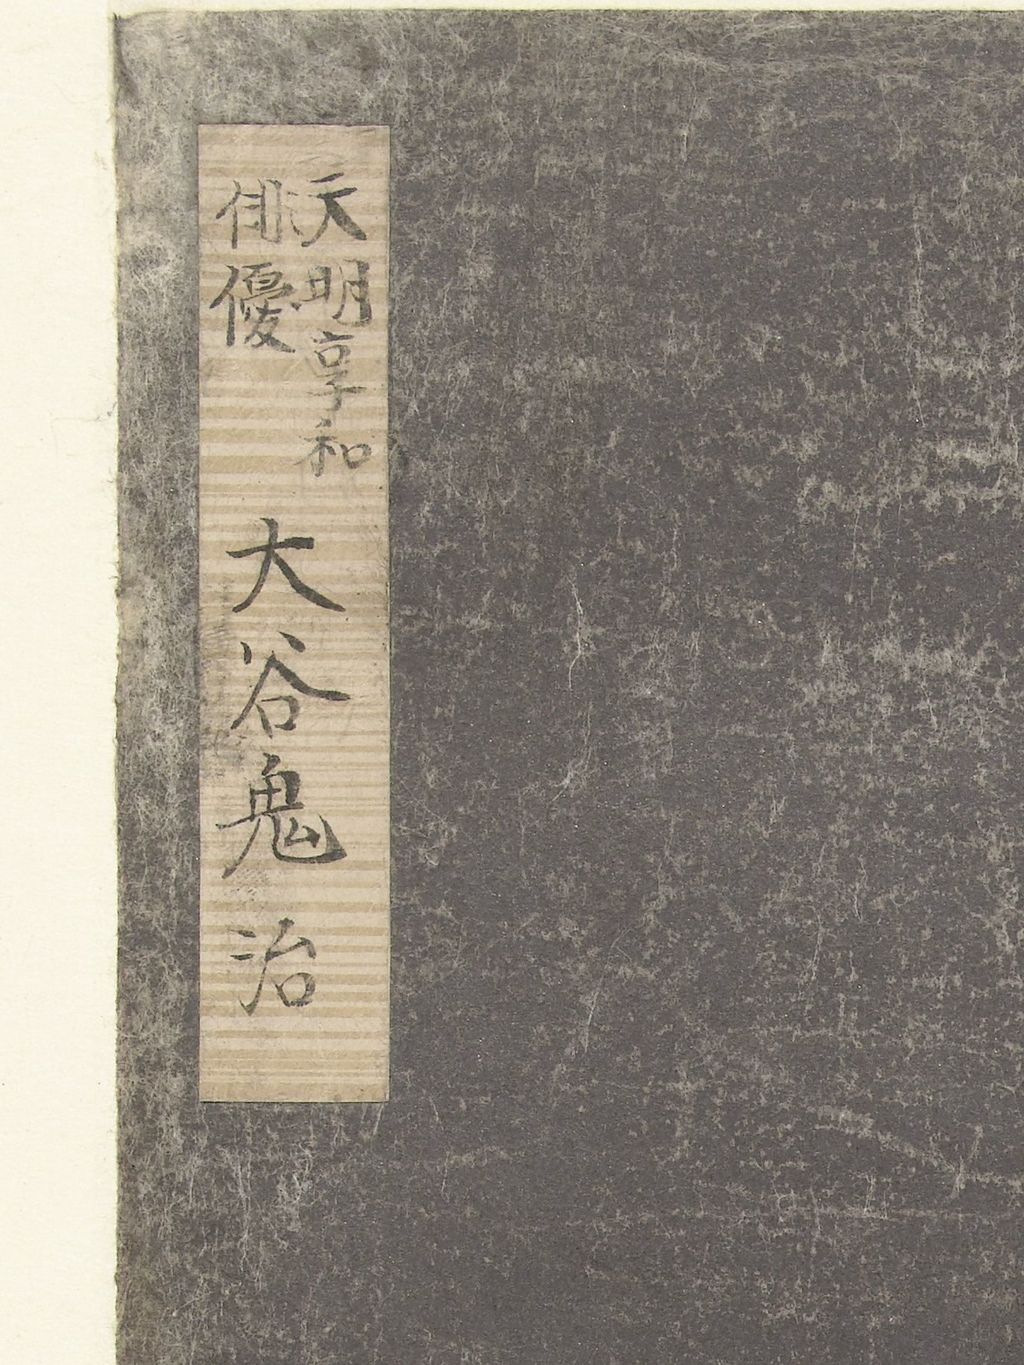 天明享和
俳優
大谷鬼治